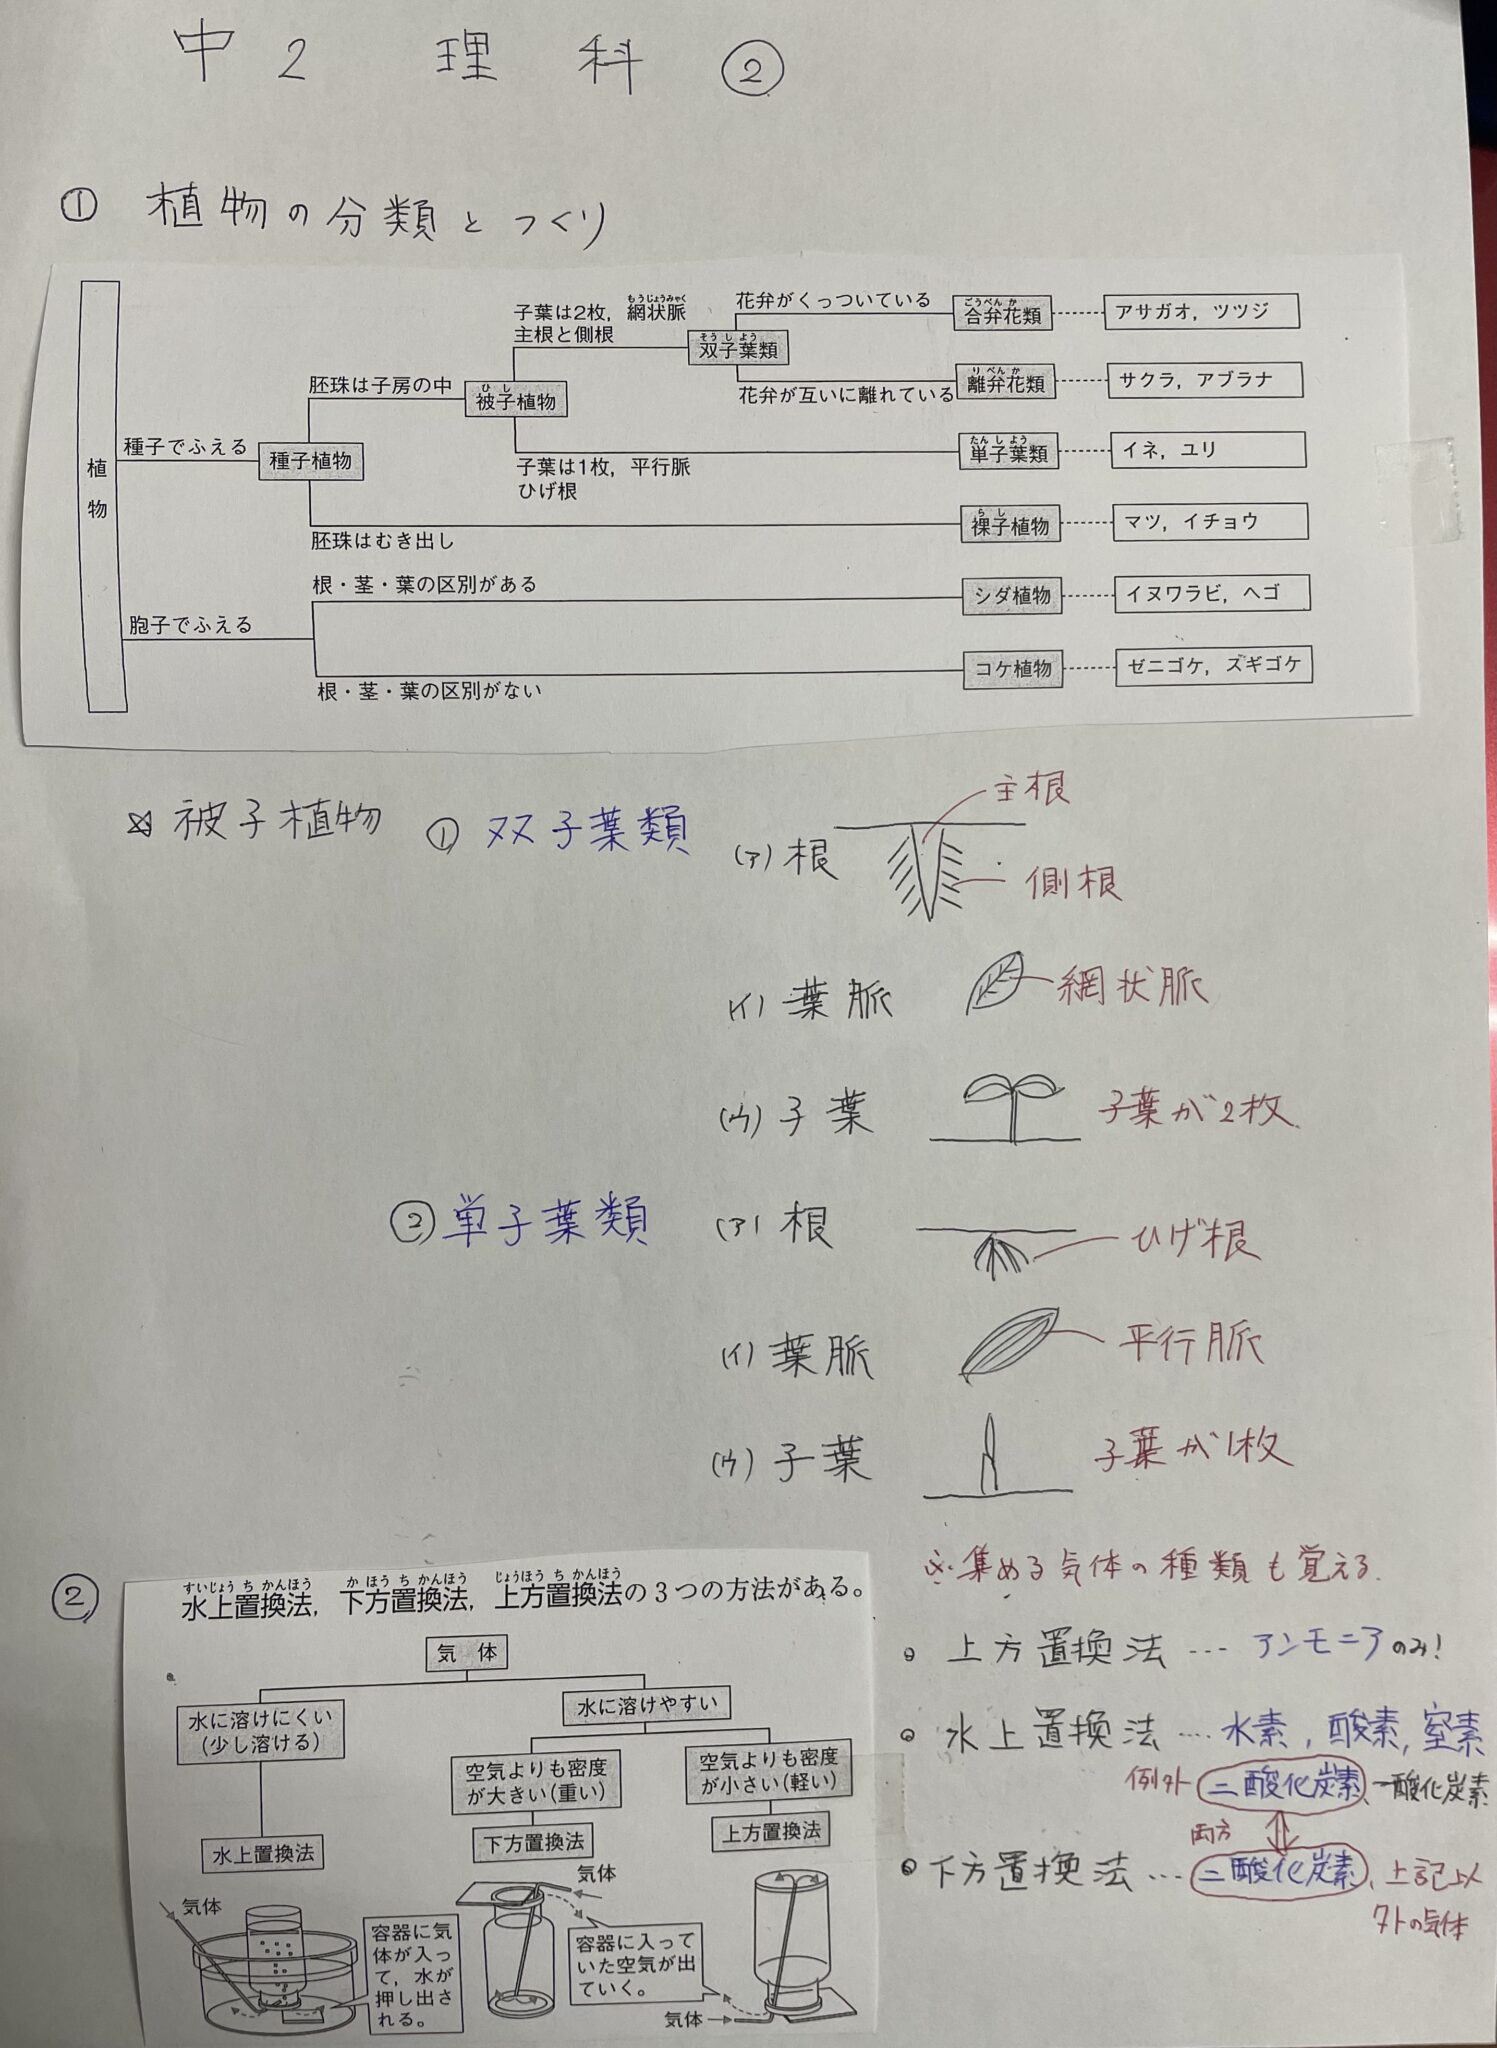 中2 理科 ②
① 植物の分類とつくり
植物
種子でふえる
種子植物
胚珠は子房の中
被子植物
ひし
子葉は2枚，網状脈
もうじょうみゃく
主根と側根
双子葉類
そうしよう
花弁がくっついている
合弁花類
ごうべんか
アサガオ，ツツジ
花弁が互いに離れている
離弁花類
りべんか
サクラ，アブラナ
子葉は1枚，平行脈
ひげ根
単子葉類
たんしよう
イネ，ユリ
胚珠はむき出し
裸子植物
らし
マツ，イチョウ
胞子でふえる
根・茎・葉の区別がある
シダ植物
イヌワラビ，ヘゴ
根・茎・葉の区別がない
コケ植物
ゼニゴケ，スギゴケ
☆ 被子植物 ① 双子葉類 (ア) 根
主根
側根
(イ) 葉脈 網状脈
(ウ) 子葉 子葉が2枚
② 単子葉類 (ア) 根 ひげ根
(イ) 葉脈 平行脈
(ウ) 子葉 子葉が1枚
②
すいじょうちかんほう かほうちかんほう じょうほうちかんほう
水上置換法，下方置換法，上方置換法の3つの方法がある。
気体
水に溶けにくい
(少し溶ける)
水に溶けやすい
空気よりも密度
が大きい(重い)
空気よりも密度
が小さい(軽い)
水上置換法
下方置換法
上方置換法
気体
容器に気
体が入っ
て，水が
押し出さ
れる。
気体
容器に入って
いた空気が出
ていく。
気体
※集める気体の種類も覚える.
上方置換法 … アンモニアのみ!
水上置換法 … 水素，酸素，窒素
例外 二酸化炭素、一酸化炭素
両方
下方置換法 … 二酸化炭素、上記以
外の気体